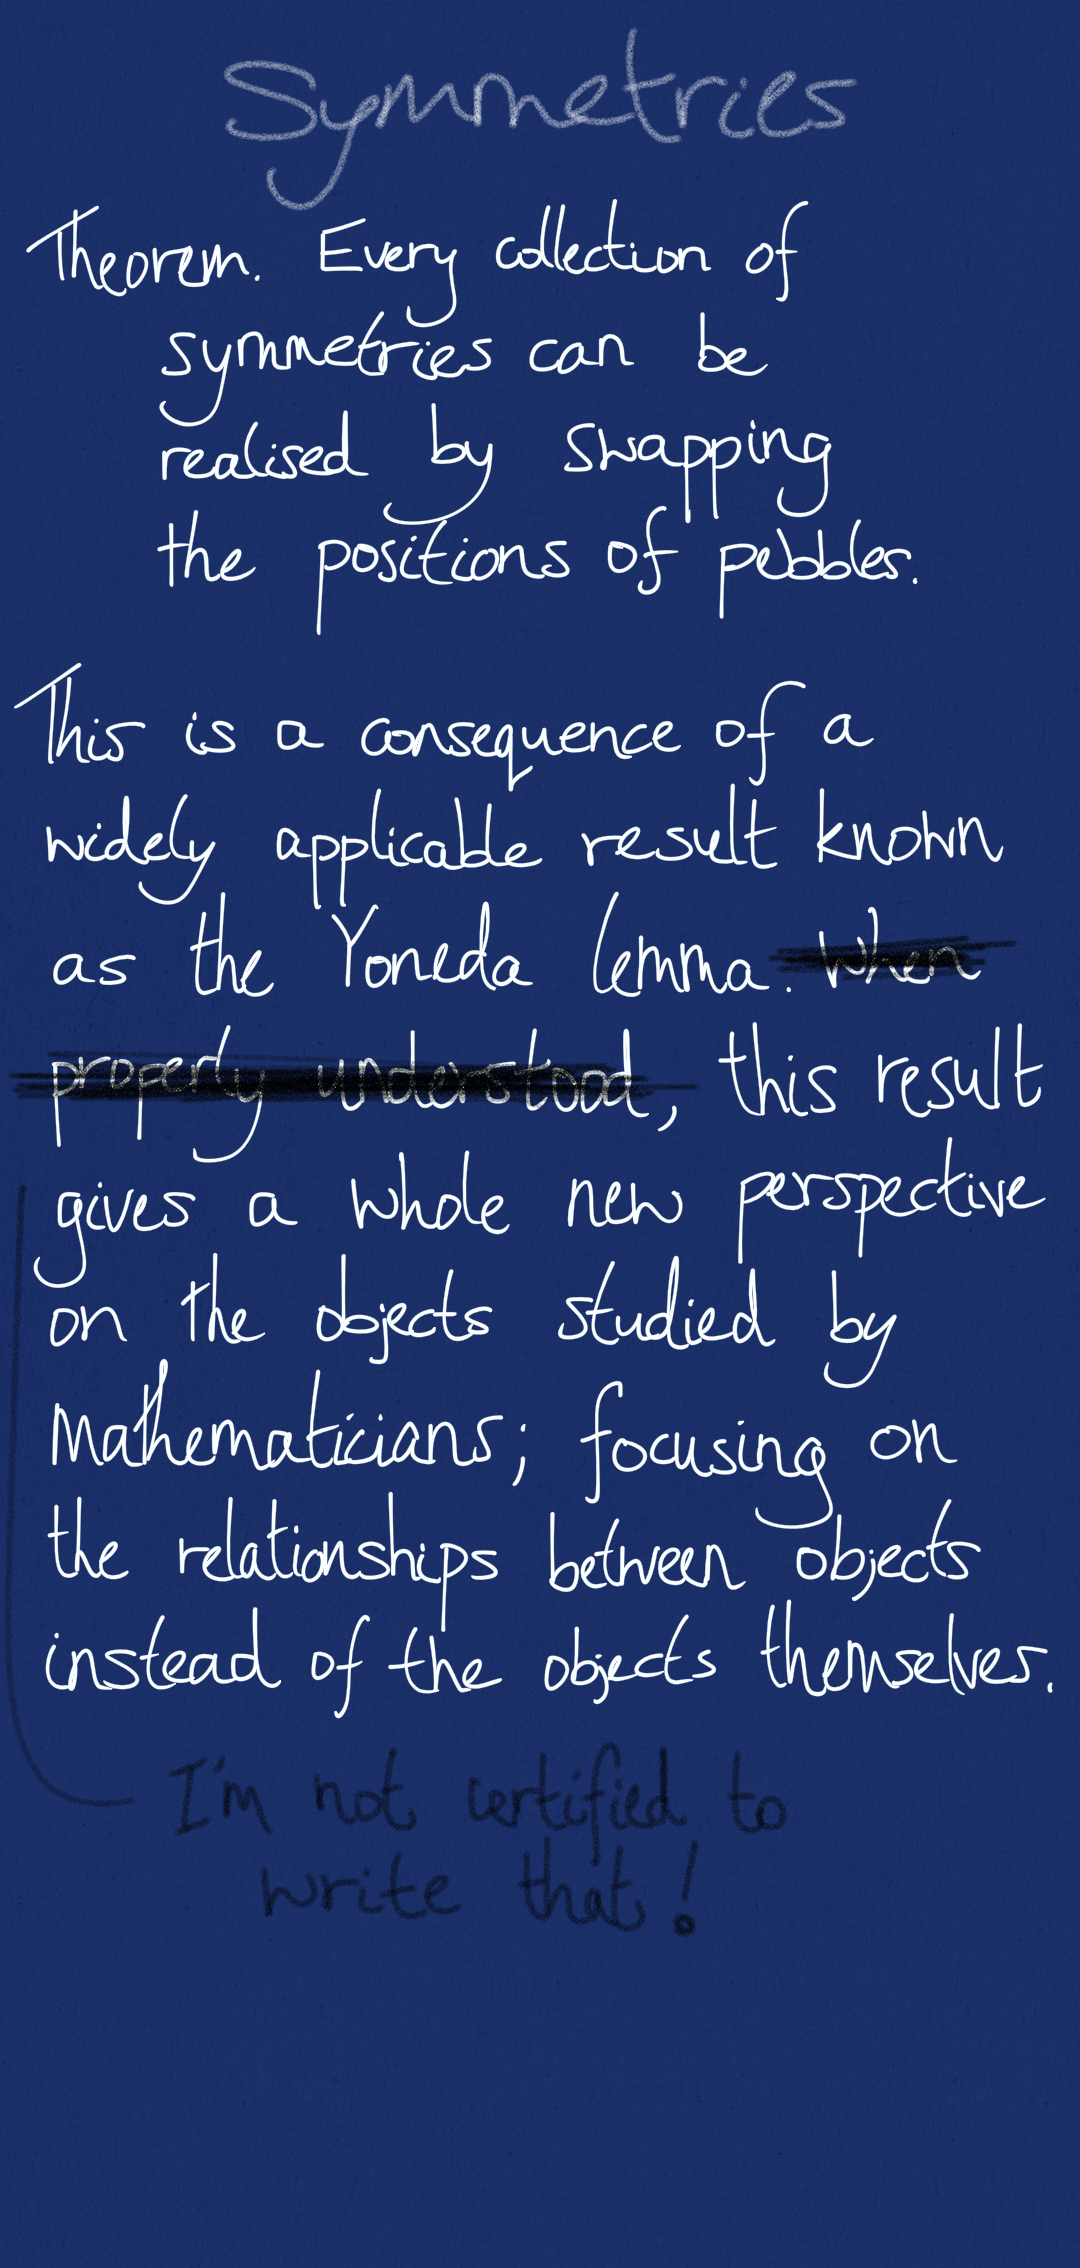 Symmetries
Theorem. Every collection of
symmetries can be
realised by swapping
the positions of pebbles.
This is a consequence of a
widely applicable result known
as the Yoneda lemma. When
properly understood, this result
gives a whole new perspective
on the objects studied by
Mathematicians; focusing on
the relationships between objects
instead of the objects themselves.
I'm not certified to
write that!